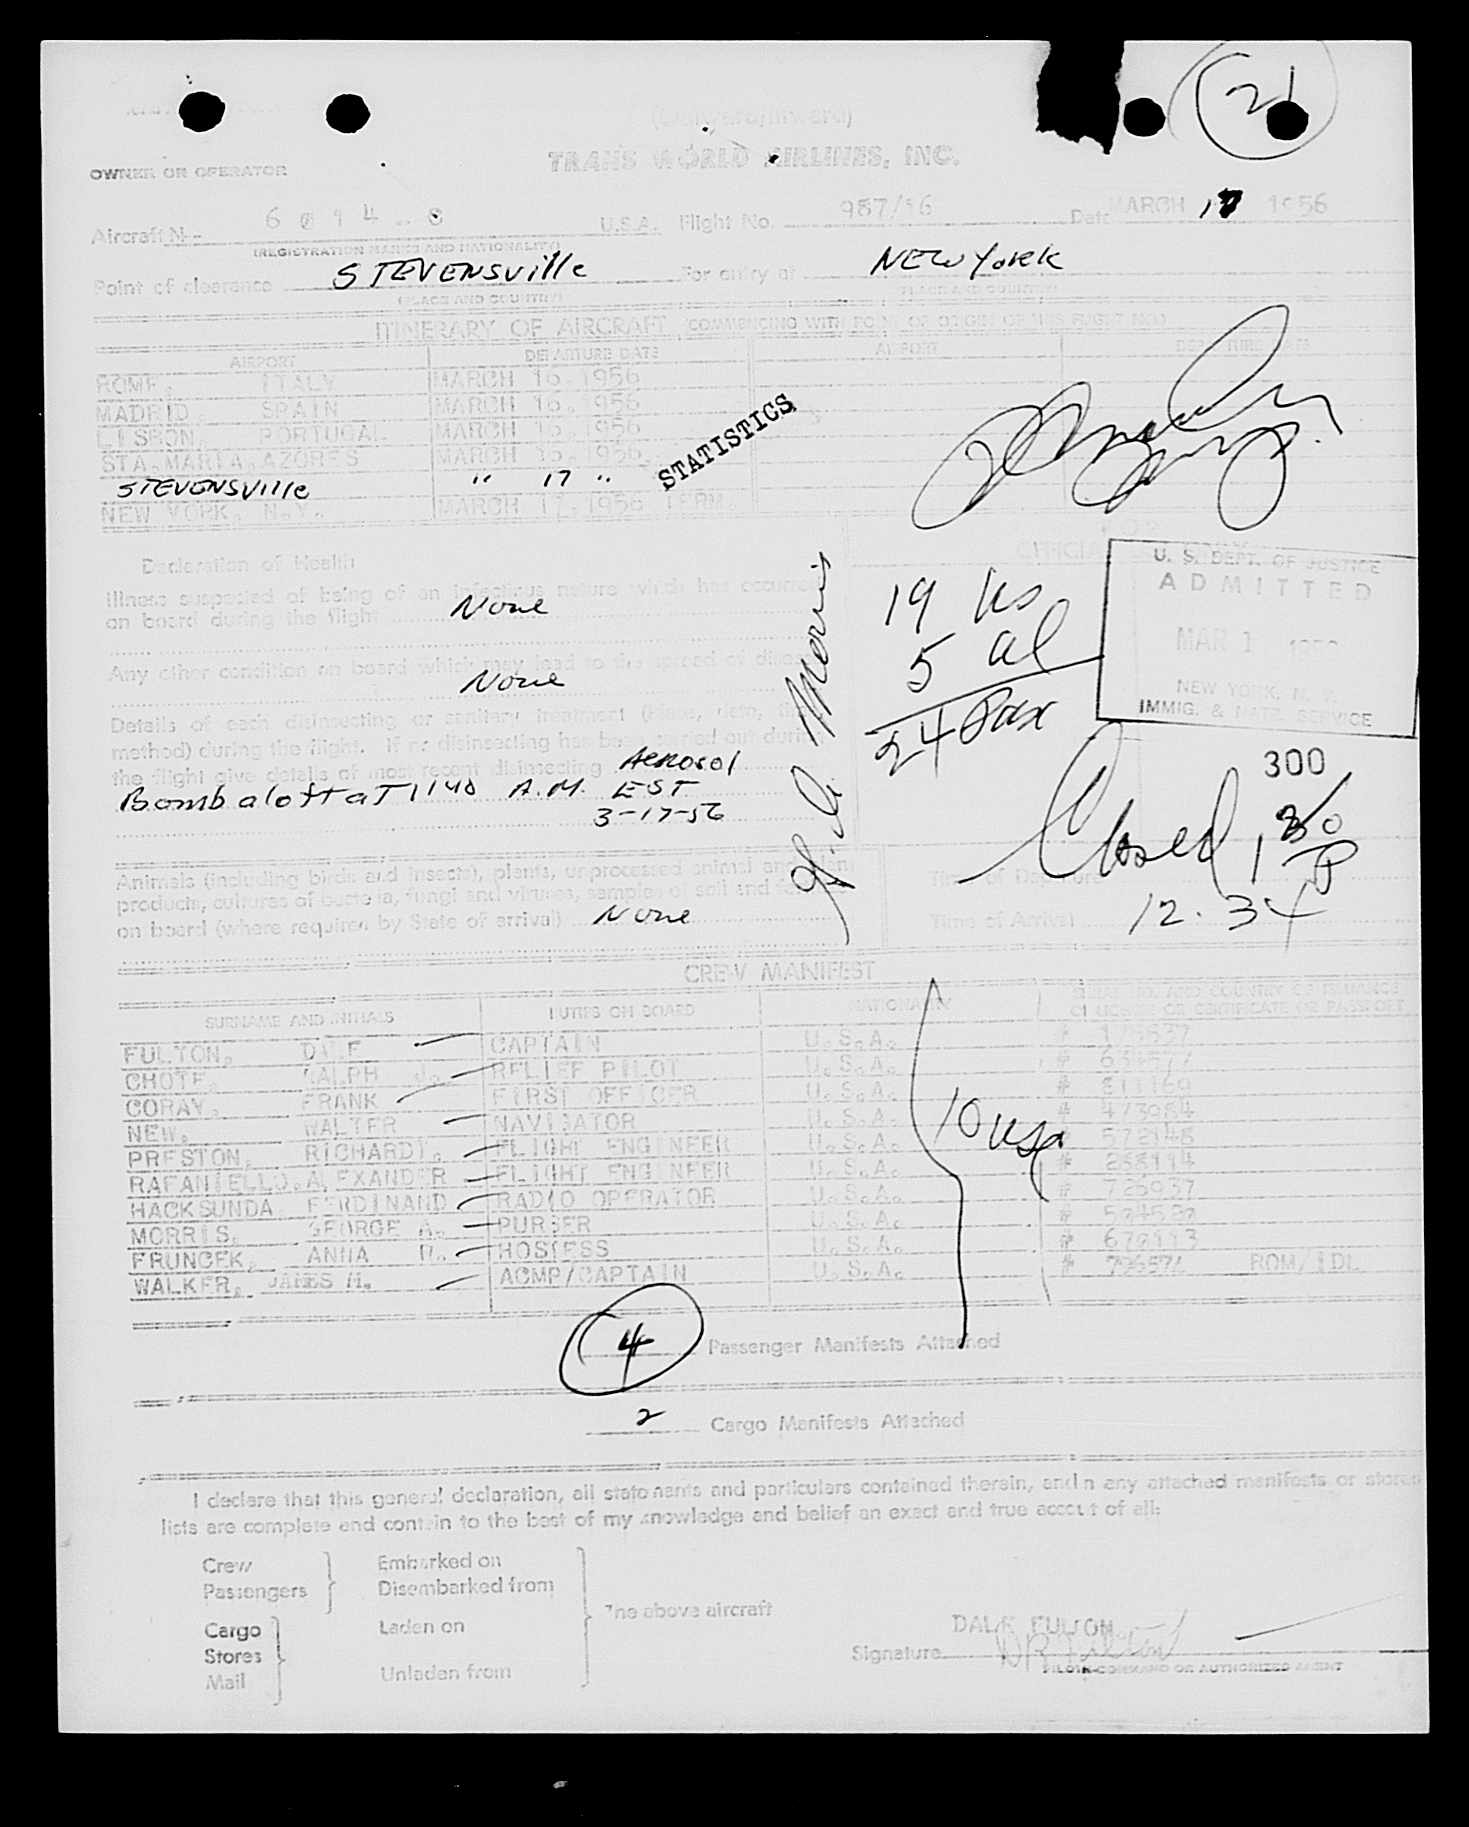 21
(Outward/Inward)
TRANS WORLD AIRLINES, INC.
OWNER OR OPERATOR
Aircraft No. 6 0 1 4 - C U.S.A. Flight No. 987/16 Date MARCH 17 1956
(REGISTRATION MARKS AND NATIONALITY)
Point of clearance STEVENSville For entry at NEW York
(PLACE AND COUNTRY) (PLACE AND COUNTRY)
ITINERARY OF AIRCRAFT (COMMENCING WITH POINT OF ORIGIN OF THIS FLIGHT NO.)
AIRPORT DEPARTURE DATE AIRPORT DEPARTURE DATE
ROME, ITALY MARCH 16, 1956
MADRID, SPAIN MARCH 16, 1956
LISBON, PORTUGAL MARCH 16, 1956
STA. MARIA, AZORES MARCH 16, 1956
STEVENSville " 17 "
NEW YORK, N.Y. MARCH 17, 1956 TERM.
STATISTICS
Declaration of Health
FOR
OFFICIAL USE ONLY
Illness suspected of being of an infectious nature which has occurred
on board during the flight None
Any other condition on board which may lead to the spread of disease
None
Details of each disinsecting or sanitary treatment (place, date, time,
method) during the flight. If no disinsecting has been carried out during
the flight give details of most recent disinsecting Aerosol
Bomb aloft aT 1140 A.M. EST
3-17-56
G. A. Morris
19 us
5 al
24 Pax
U. S. DEPT. OF JUSTICE
ADMITTED
MAR 1 195
NEW YORK, N. Y.
IMMIG. & NATZ. SERVICE
300
Closed 1 30 P
Animals (including birds and insects), plants, unprocessed animal and plant
products, cultures of bacteria, fungi and viruses, samples of soil and
on board (where required by State of arrival) None
Time of Departure
Time of Arrival 12.34
CREW MANIFEST
SURNAME AND INITIALS DUTIES ON BOARD NATIONALITY SERIAL NO. AND COUNTRY OF ISSUANCE
OF LICENSE OR CERTIFICATE OR PASSPORT
FULTON, DALE CAPTAIN U.S.A. #
CHOTE, RALPH J. RELIEF PILOT U.S.A. #
CORAY, FRANK FIRST OFFICER U.S.A. #
NEW, WALTER NAVIGATOR U.S.A. # 473984
PRESTON, RICHARD FLIGHT ENGINEER U.S.A. # 572148
RAFANIELLO, ALEXANDER FLIGHT ENGINEER U.S.A. #
HACKSUNDA FERDINAND RADIO OPERATOR U.S.A. # 725937
MORRIS, GEORGE A. PURSER U.S.A. #
FRUNCEK, ANNA HOSTESS U.S.A. #
WALKER, JAMES H. ACMP/CAPTAIN U.S.A. # ROM/IDL
10 usa
4 Passenger Manifests Attached
2 Cargo Manifests Attached
I declare that this general declaration, all statements and particulars contained therein, and in any attached manifests or stores
lists are complete and contain to the best of my knowledge and belief an exact and true account of all:
Crew Embarked on
Passengers Disembarked from
The above aircraft
Cargo Laden on
Stores
Mail Unladen from
DALE FULTON
Signature D R Fulton
PILOT-IN-COMMAND OR AUTHORIZED AGENT